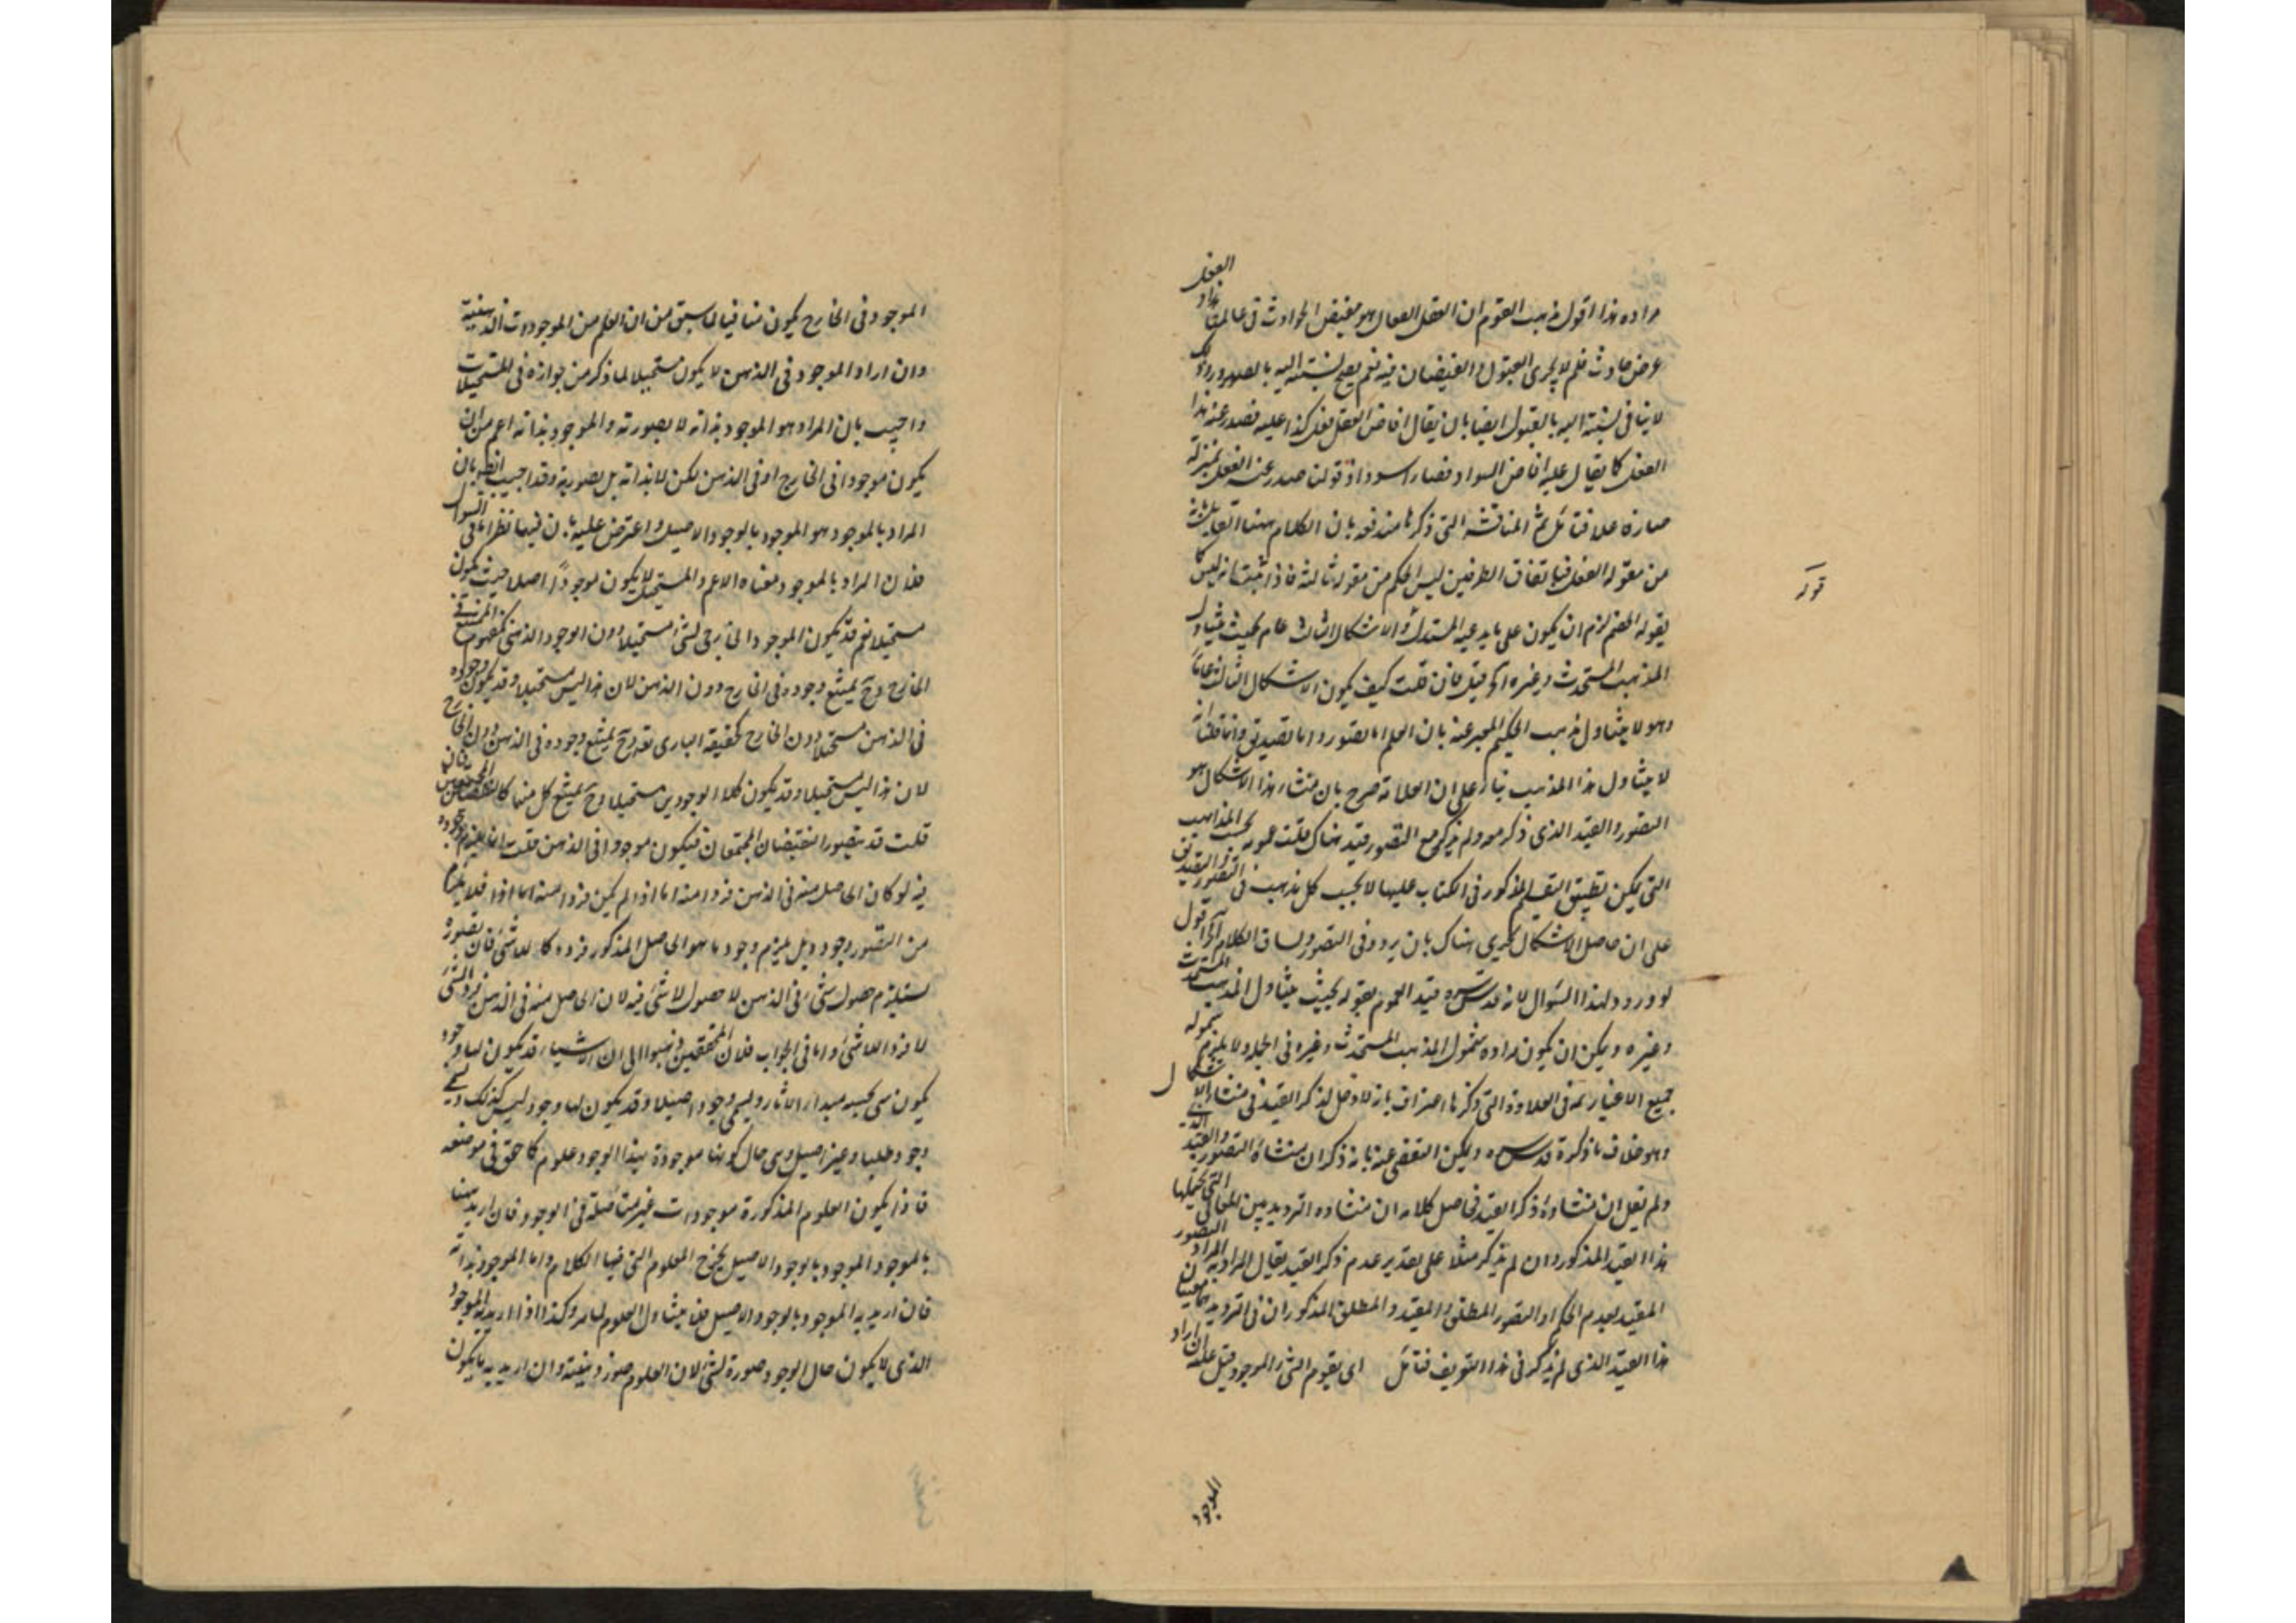 مراده هذا اقول مذهب القوم ان العقل الفعال هو مفيض الحوادث فى عالمنا هذا والفعل
عرض حادث فلم لا يجرى القبول والفيضان فيه نعم يصح نسبته اليه بالصدور وذلك
لا ينافى نسبته اليه بالقبول ايضا بان يقال افاض العقل فعل كذا عليه فصدر عنه هذا
الفعل كما يقال عليه افاض السواد فصار اسود اذ قولنا صدر عنه الفعل بمنزلة
صار فاعلا فتأمل ثم المناقشة التى ذكرها مندفعة بان الكلام ههنا
من مقولة الفعل فباتفاق الطرفين ليس الحكم من مقولة ثالثة فاذا ثبت انه ليس كما
يقوله الخصم لزم ان يكون على ما يدعيه المستدل والاشكال الثالث عام بحيث يتناول
المذهب المستحدث وغيره الخ قيل فان قلت كيف يكون الاشكال الثالث عاما
وهو لا يتناول مذهب الحكيم المعبر عنه بان العلم اما تصور واما تصديق وانما قلنا انه
لا يتناول هذا المذهب بناء على ان العلامة صرح بان منشاء هذا الاشكال هو
التصور والقيد الذى ذكر معه ولم يذكر مع التصور قيد هناك قلت عمومه بحسب المذاهب
التى يمكن تطبيق التقسيم المذكور فى الكتاب عليها لا بحسب كل مذهب فى التصور والتصديق
على ان حاصل الاشكال يجرى هناك بان يردد فى التصور ويساق الكلام الى آخره اقول
لا ورود لهذا السؤال لانه قدس سره قيد العموم بقوله بحيث يتناول المذهب المستحدث
وغيره ويمكن ان يكون مراده شمول المذهب المستحدث وغيره فى الجملة ولا يلزم شموله
جميع الاغيار ثم فى العلاوة التى ذكرها اعتراف بانه لا دخل لذكر القيد فى منشاء الاشكال
وهو خلاف ما ذكره قدس سره ويمكن التفصى عنه بانه ذكر ان منشاءه التصور والقيد الذى
ولم يقل ان منشاءه ذكر القيد فحاصل كلامه ان منشاءه الترديد بين المعانى التى يحتملها التصور
هذا القيد المذكور وان لم يذكر مثلا على تقدير عدم ذكر القيد يقال المراد به
المقيد بعدم الحكم او التصور المطلق والمقيد والمطلق المذكوران فى الترديد
هذا القيد الذى لم يذكر فى هذا التعريف فتأمل اى يقوم الشئ الموجود قيل عليه ان اراد
قوله
الموجود
الموجود فى الخارج يكون منافيا لما سبق من ان العلم من الموجودات الذهنية
وان اراد الموجود فى الذهن لا يكون مستحيلا لما ذكر من جوازه فى المستحيلات
واجيب بان المراد هو الموجود بذاته لا بصورته والموجود بذاته اعم من ان
يكون موجودا فى الخارج او فى الذهن لكن لا بذاته بل بصورته وقد اجيب ايضا بان
المراد بالموجود هو الموجود بالوجود الاصيل واعترض عليه بان فيها نظرا اما فى السؤال
فلان المراد بالموجود معناه الاعم والمستحيل لا يكون موجودا اصلا حيث يكون
مستحيلا نعم قد يكون الموجود الخارجى لشئ مستحيلا دون الوجود الذهنى كمفهوم الممتنع فى
الخارج وح يمتنع وجوده فى الخارج دون الذهن لان هذا ليس مستحيلا وقد يكون وجوده
فى الذهن مستحيلا دون الخارج كحقيقة البارى تعه وح يمتنع وجوده فى الذهن دون الخارج
لان هذا ليس مستحيلا وقد يكون كلا الوجودين مستحيلا وح يمتنع كل منهما كالنقيضان المجتمعين فان
قلت قد يتصور النقيضان المجتمعان فيكون موجودا فى الذهن قلت انما يلزم وجوده
فيه لو كان الحاصل منه فى الذهن فردا منه اما اذا لم يكن فردا منه فلا يلزم
من التصور وجوده بل يلزم وجود ما هو الحاصل المذكور فرده كاللاشئ فان تصوره
يستلزم حصول شئ فى الذهن لا حصول لا شئ فيه لان الحاصل منه فى الذهن فرد الشئ
لا فرد اللاشئ واما فى الجواب فلان المحققين ذهبوا الى ان الاشياء قد يكون لها وجود
يكون هى بحسبه مبدا الاثار ويسمى وجودا اصيلا وقد يكون لها وجود ليس كذلك ويسمى
وجودا ظليا وغير اصيل وهى حال كونها موجودة بهذا الوجود علوم كما حقق فى موضعه
فاذا يكون العلوم المذكورة موجودات غير متأصلة فى الوجود فان اريد ههنا
بالموجود الموجود بالوجود الاصيل يخرج العلوم التى فيها الكلام واما الموجود بذاته
فان اريد به الموجود بالوجود الاصيل فلا يتناول العلوم لما مر وكذا اذا اريد به الموجود
الذى لا يكون حال الوجود صورة لشئ لان العلوم صور ذهنية وان اريد به ما يكون